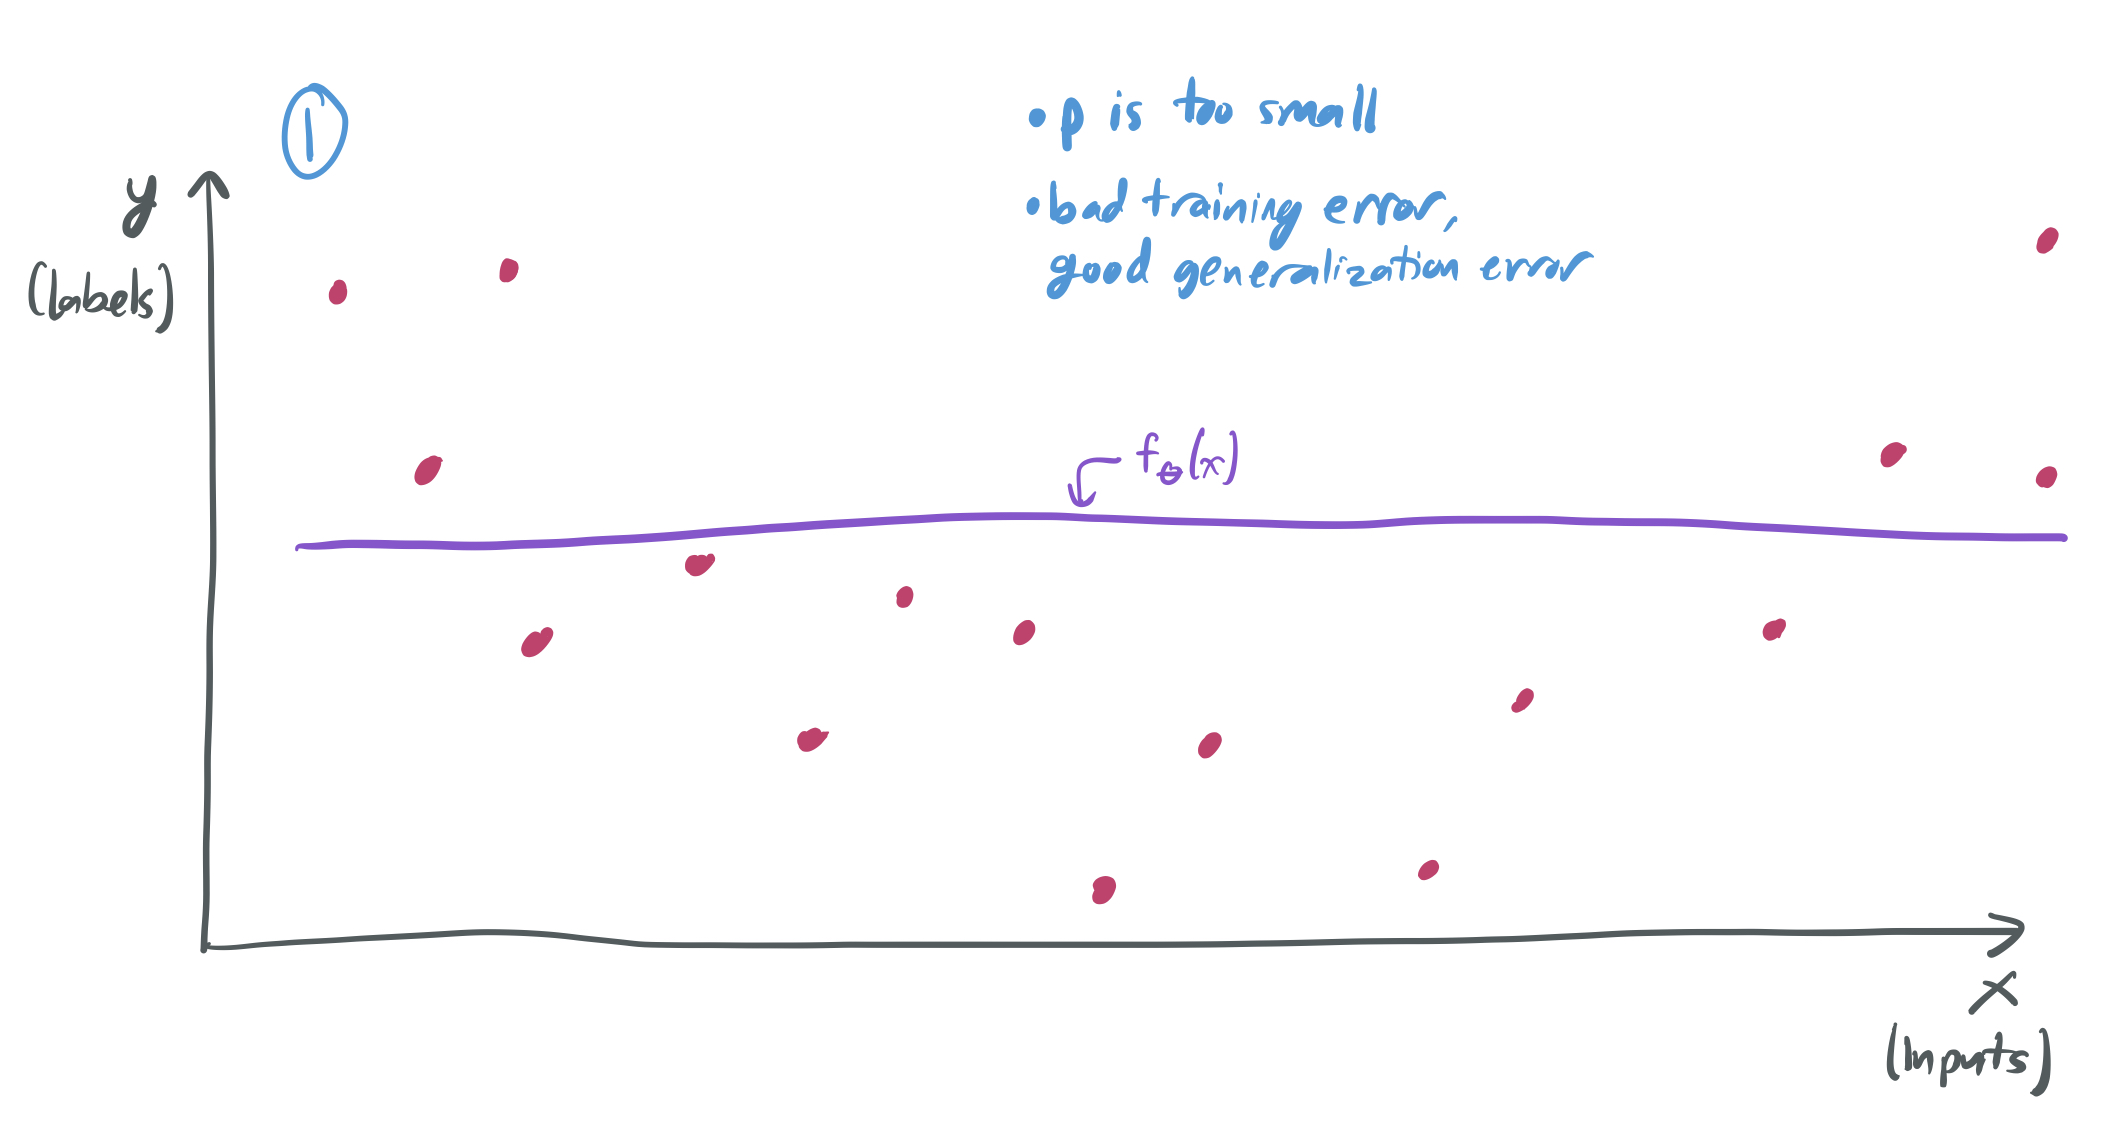 ①
• p is too small
• bad training error,
good generalization error
y
(labels)
fθ(x)
x
(inputs)